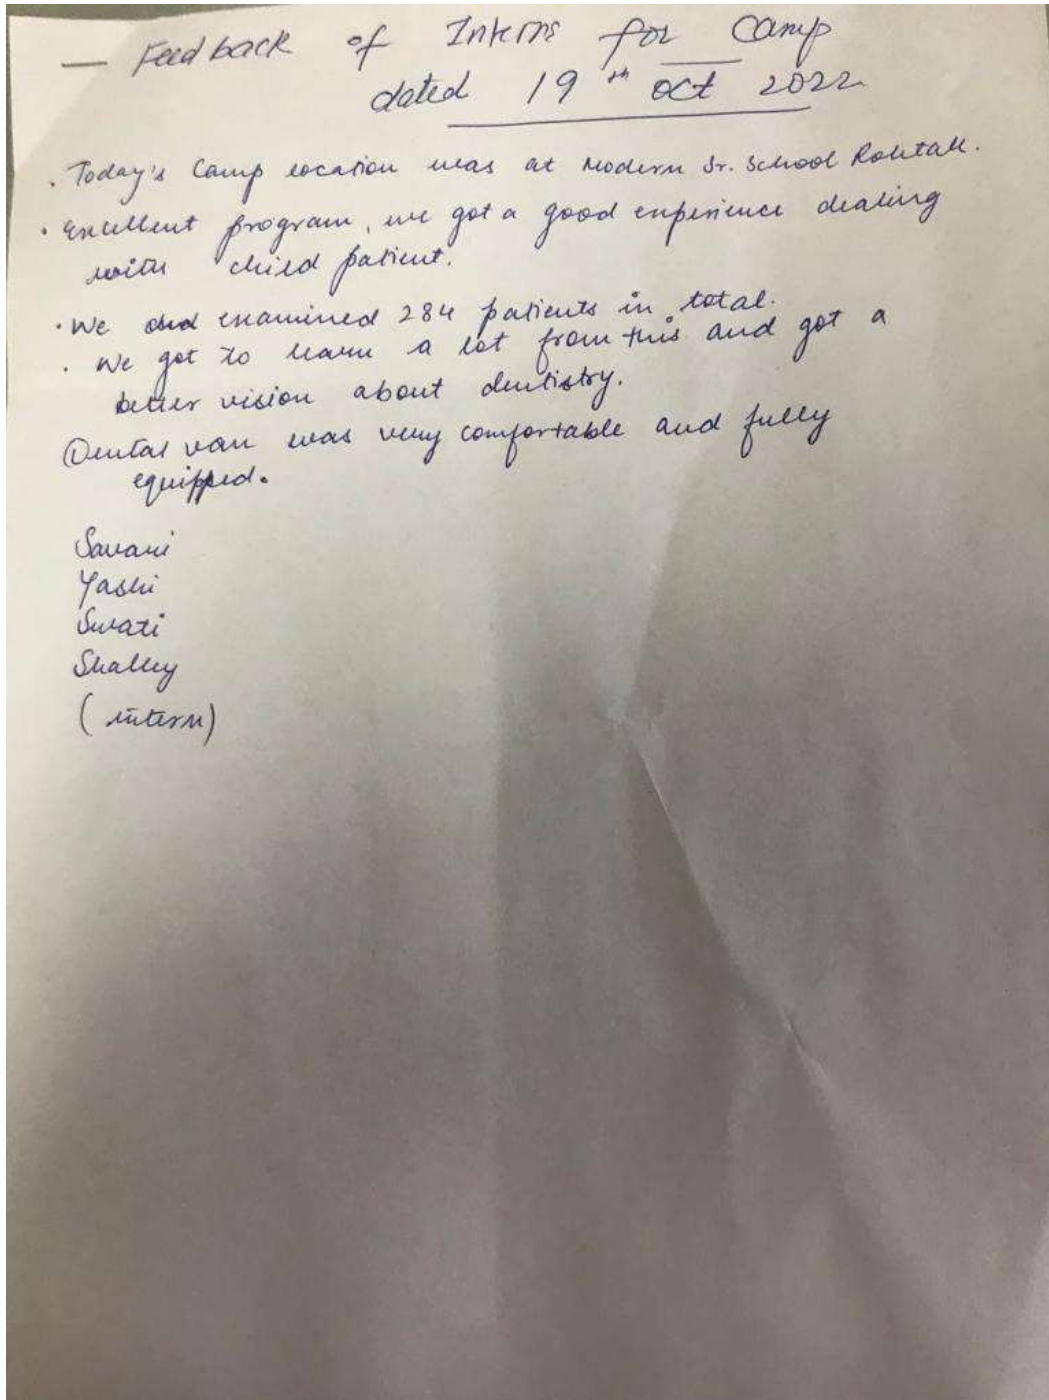 — Feedback of Interns for Camp
dated 19th oct 2022
. Today's Camp location was at Modern Sr. School Rohtak.
. Excellent program, we got a good experience dealing
with child patient.
. We did examined 284 patients in total.
. We got to learn a lot from this and got a
better vision about dentistry.
Dental van was very comfortable and fully
equipped.
Savani
Yashi
Swati
Shalley
(intern)